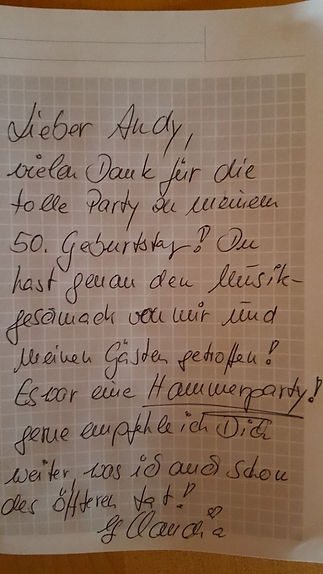 Lieber Andy,
vielen Dank für die
tolle Party zu meinem
50. Geburtstag! Du
hast genau den Musik-
geschmack von mir und
meinen Gästen getroffen!
Es war eine Hammerparty!
gerne empfehle ich Dich
weiter, was ich auch schon
des öfteren tat!
lg Claudia